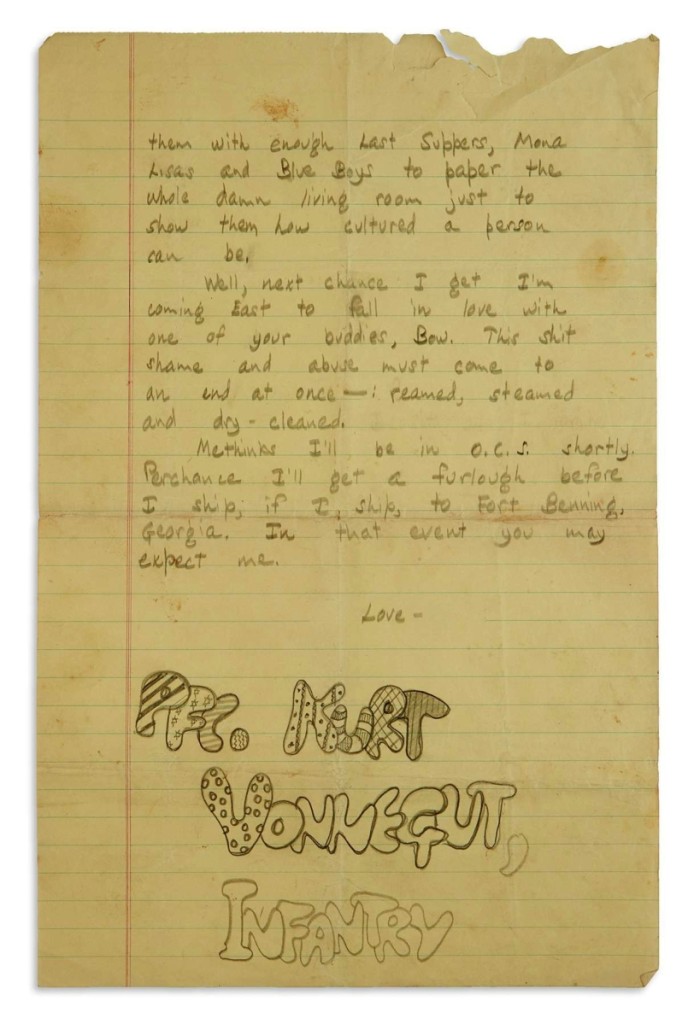 them with enough Last Suppers, Mona
Lisas and Blue Boys to paper the
whole damn living room just to
show them how cultured a person
can be.
Well, next chance I get I'm
coming East to fall in love with
one of your buddies, Bow. This shit
shame and abuse must come to
an end at once—: reamed, steamed
and dry-cleaned.
Methinks I'll be in O.C.S. shortly.
Perchance I'll get a furlough before
I ship, if I, ship, to Fort Benning,
Georgia. In that event you may
expect me.
Love -
Pfc. Kurt
Vonnegut,
Infantry